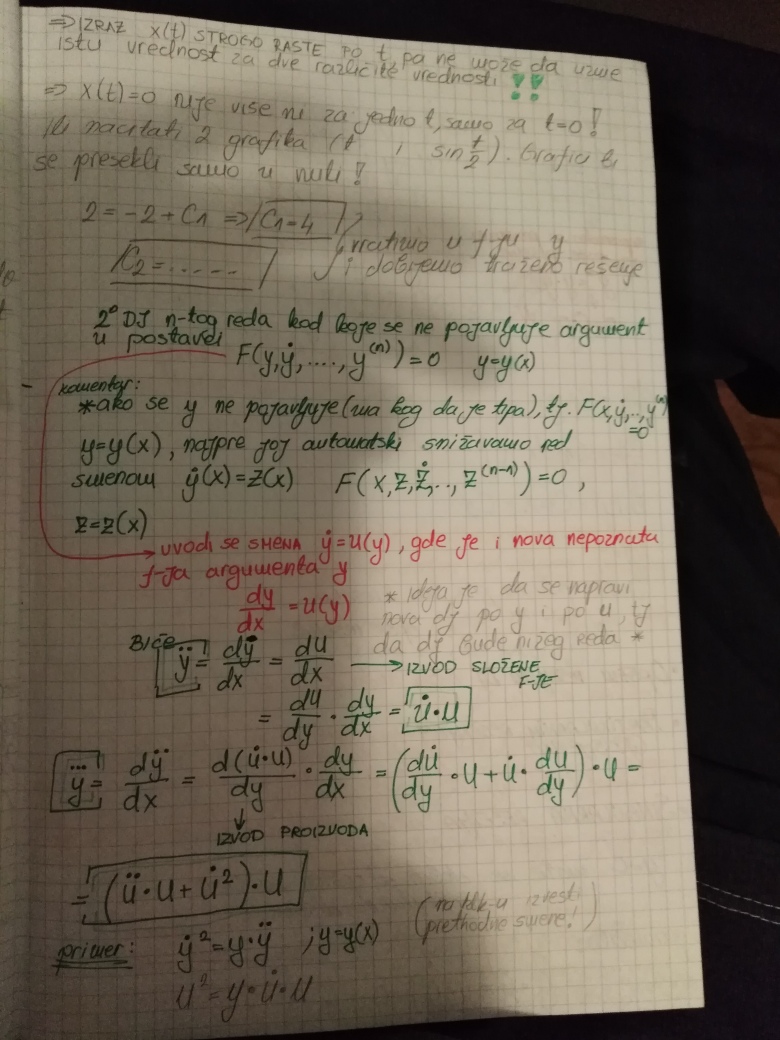 ⇒ IZRAZ x(t) STROGO RASTE PO t, pa ne može da uzme
istu vrednost za dve različite vrednosti !!
⇒ x(t)=0 nije više ni za jedno t, samo za t=0!
ili nacrtati 2 grafika (t i sin t/2). Grafici bi
se presekli samo u nuli!
2=-2+C1 ⇒ C1=4
vratimo u f-ju y
C2=.....
i dobijemo traženo rešenje
2° DJ n-tog reda kod koje se ne pojavljuje argument
u postavci F(y,ẏ,....,y^(n))=0 y=y(x)
komentar:
*ako se y ne pojavljuje (ma kog da je tipa), tj. F(x,ẏ,..,y^(n))=0
y=y(x), najpre joj automatski snižavamo red
smenom ẏ(x)=z(x) F(x,z,ż,..,z^(n-1))=0,
z=z(x)
uvodi se SMENA ẏ=u(y), gde je i nova nepoznata
f-ja argumenta y
dy/dx = u(y)
* Ideja je da se napravi
nova dj po y i po u, tj
da dj bude nižeg reda *
BIĆE ÿ = dẏ/dx = du/dx → IZVOD SLOŽENE
F-JE
= du/dy · dy/dx = u̇·u
y⃛ = dÿ/dx = d(u̇·u)/dy · dy/dx = (du̇/dy · u + u̇ · du/dy) · u =
↓
IZVOD PROIZVODA
= (ü·u + u̇²)·u
(na klk-u izvesti
prethodne smene!)
primer: ẏ²=y·ÿ ; y=y(x)
u²=y·u̇·u